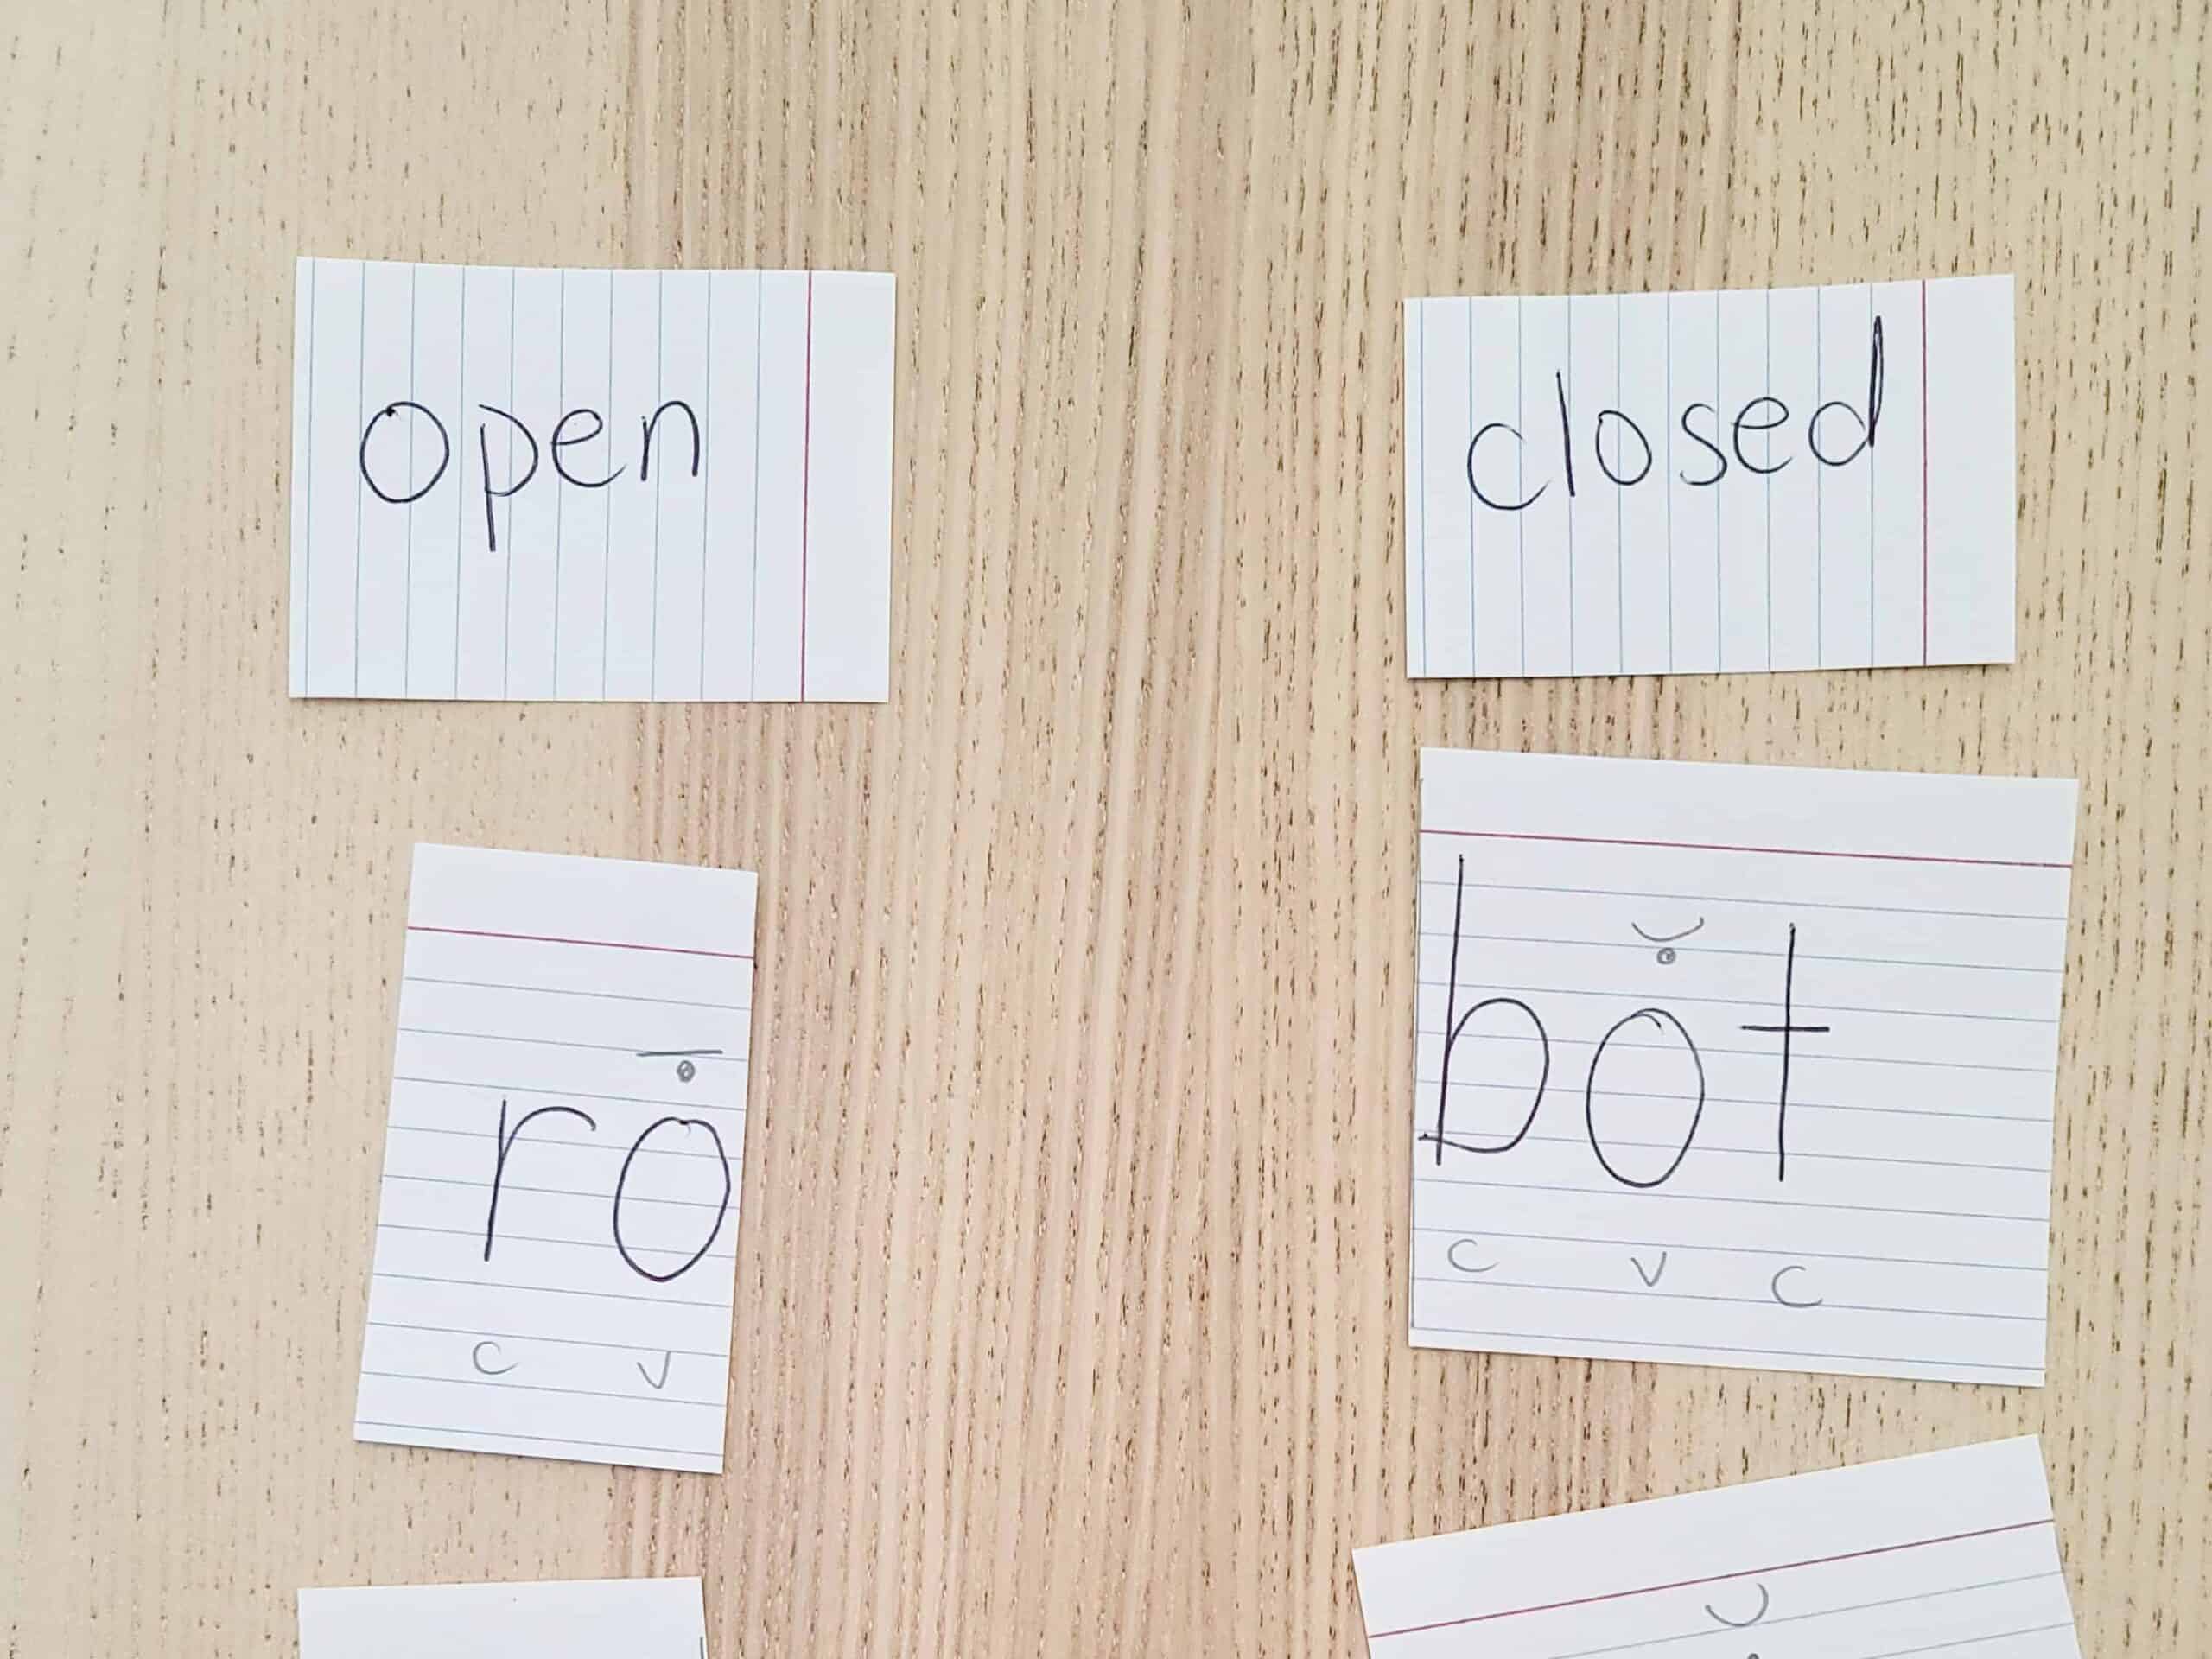 open
closed
rō
c v
bŏt
c v c